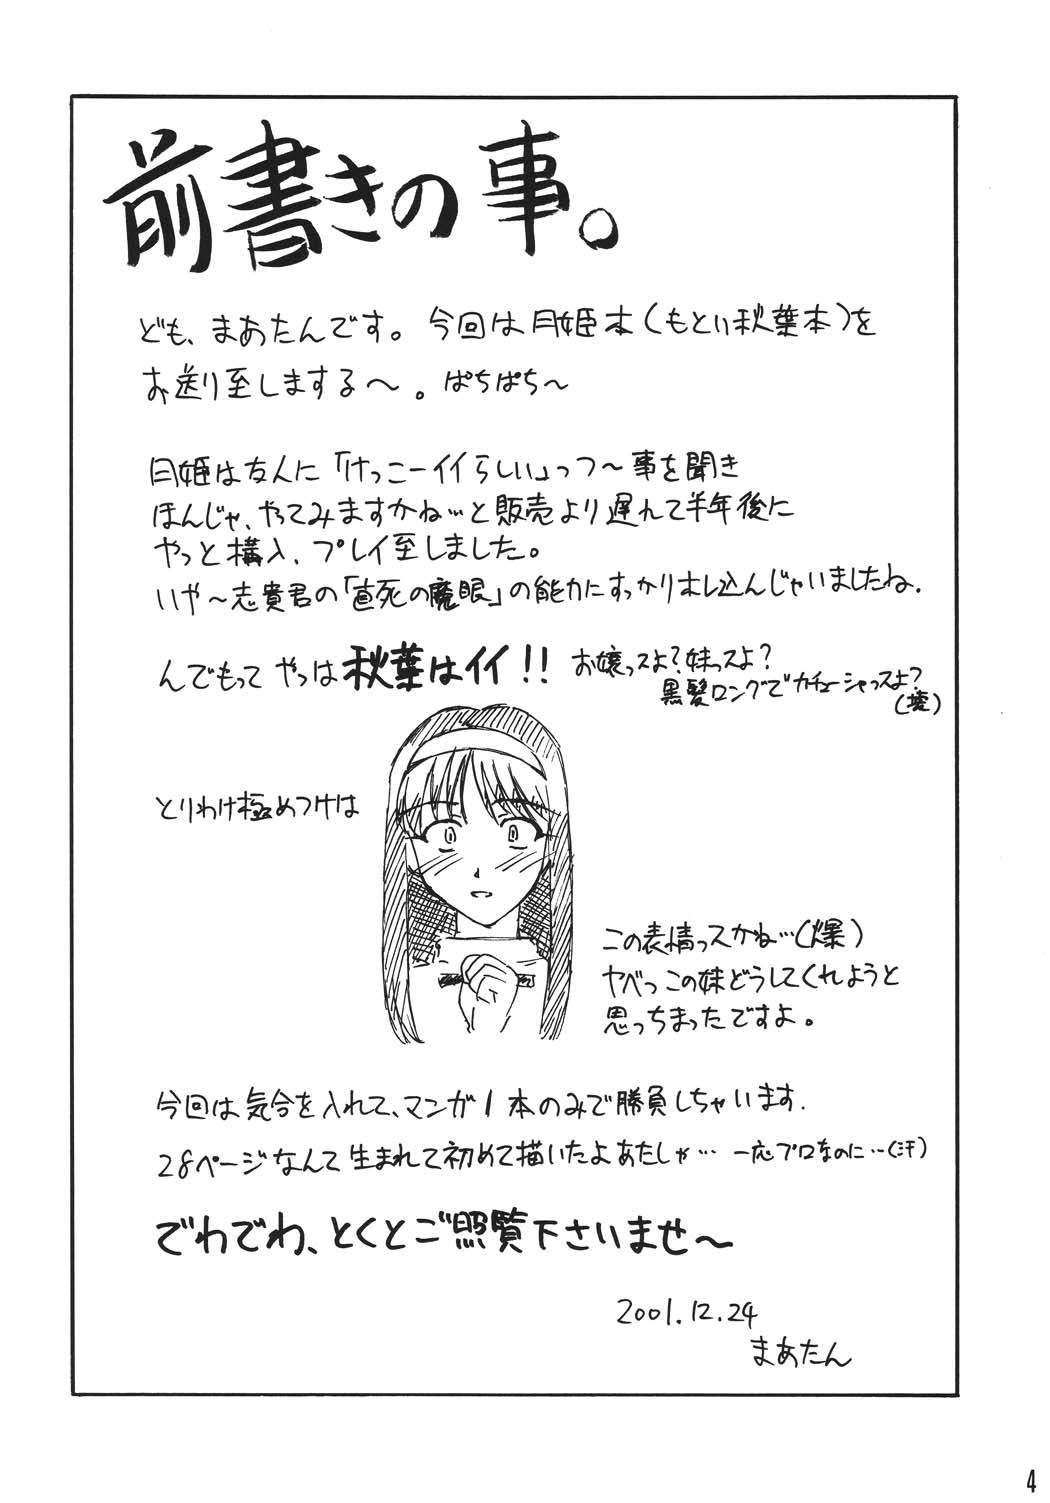 前書きの事。
ども、まあたんです。今回は月姫本(もとい秋葉本)を
お送り至しまする〜。ぱちぱち〜
月姫は友人に「けっこーイイらしい」っつ〜事を聞き
ほんじゃ、やってみますかね…と販売より遅れて半年後に
やっと構入、プレイ至しました。
いや〜志貴君の「直死の魔眼」の能力にすっかりホレ込んじゃいましたね.
んでもって やっは 秋葉はイイ!! お嬢っスよ?妹っスよ?
黒髪ロングでカチューシャっスよ?
(壊)
とりわけ極めつけは
この表情っスかね…(爆)
ヤベっこの妹どうしてくれようと
思っちまったですよ。
今回は気合を入れて、マンガ1本のみで勝負しちゃいます.
28ページなんて生まれて初めて描いたよあたしゃ… 一応プロなのに…(汗)
でわでわ、とくとご照覧下さいませ〜
2001.12.24
まあたん
4